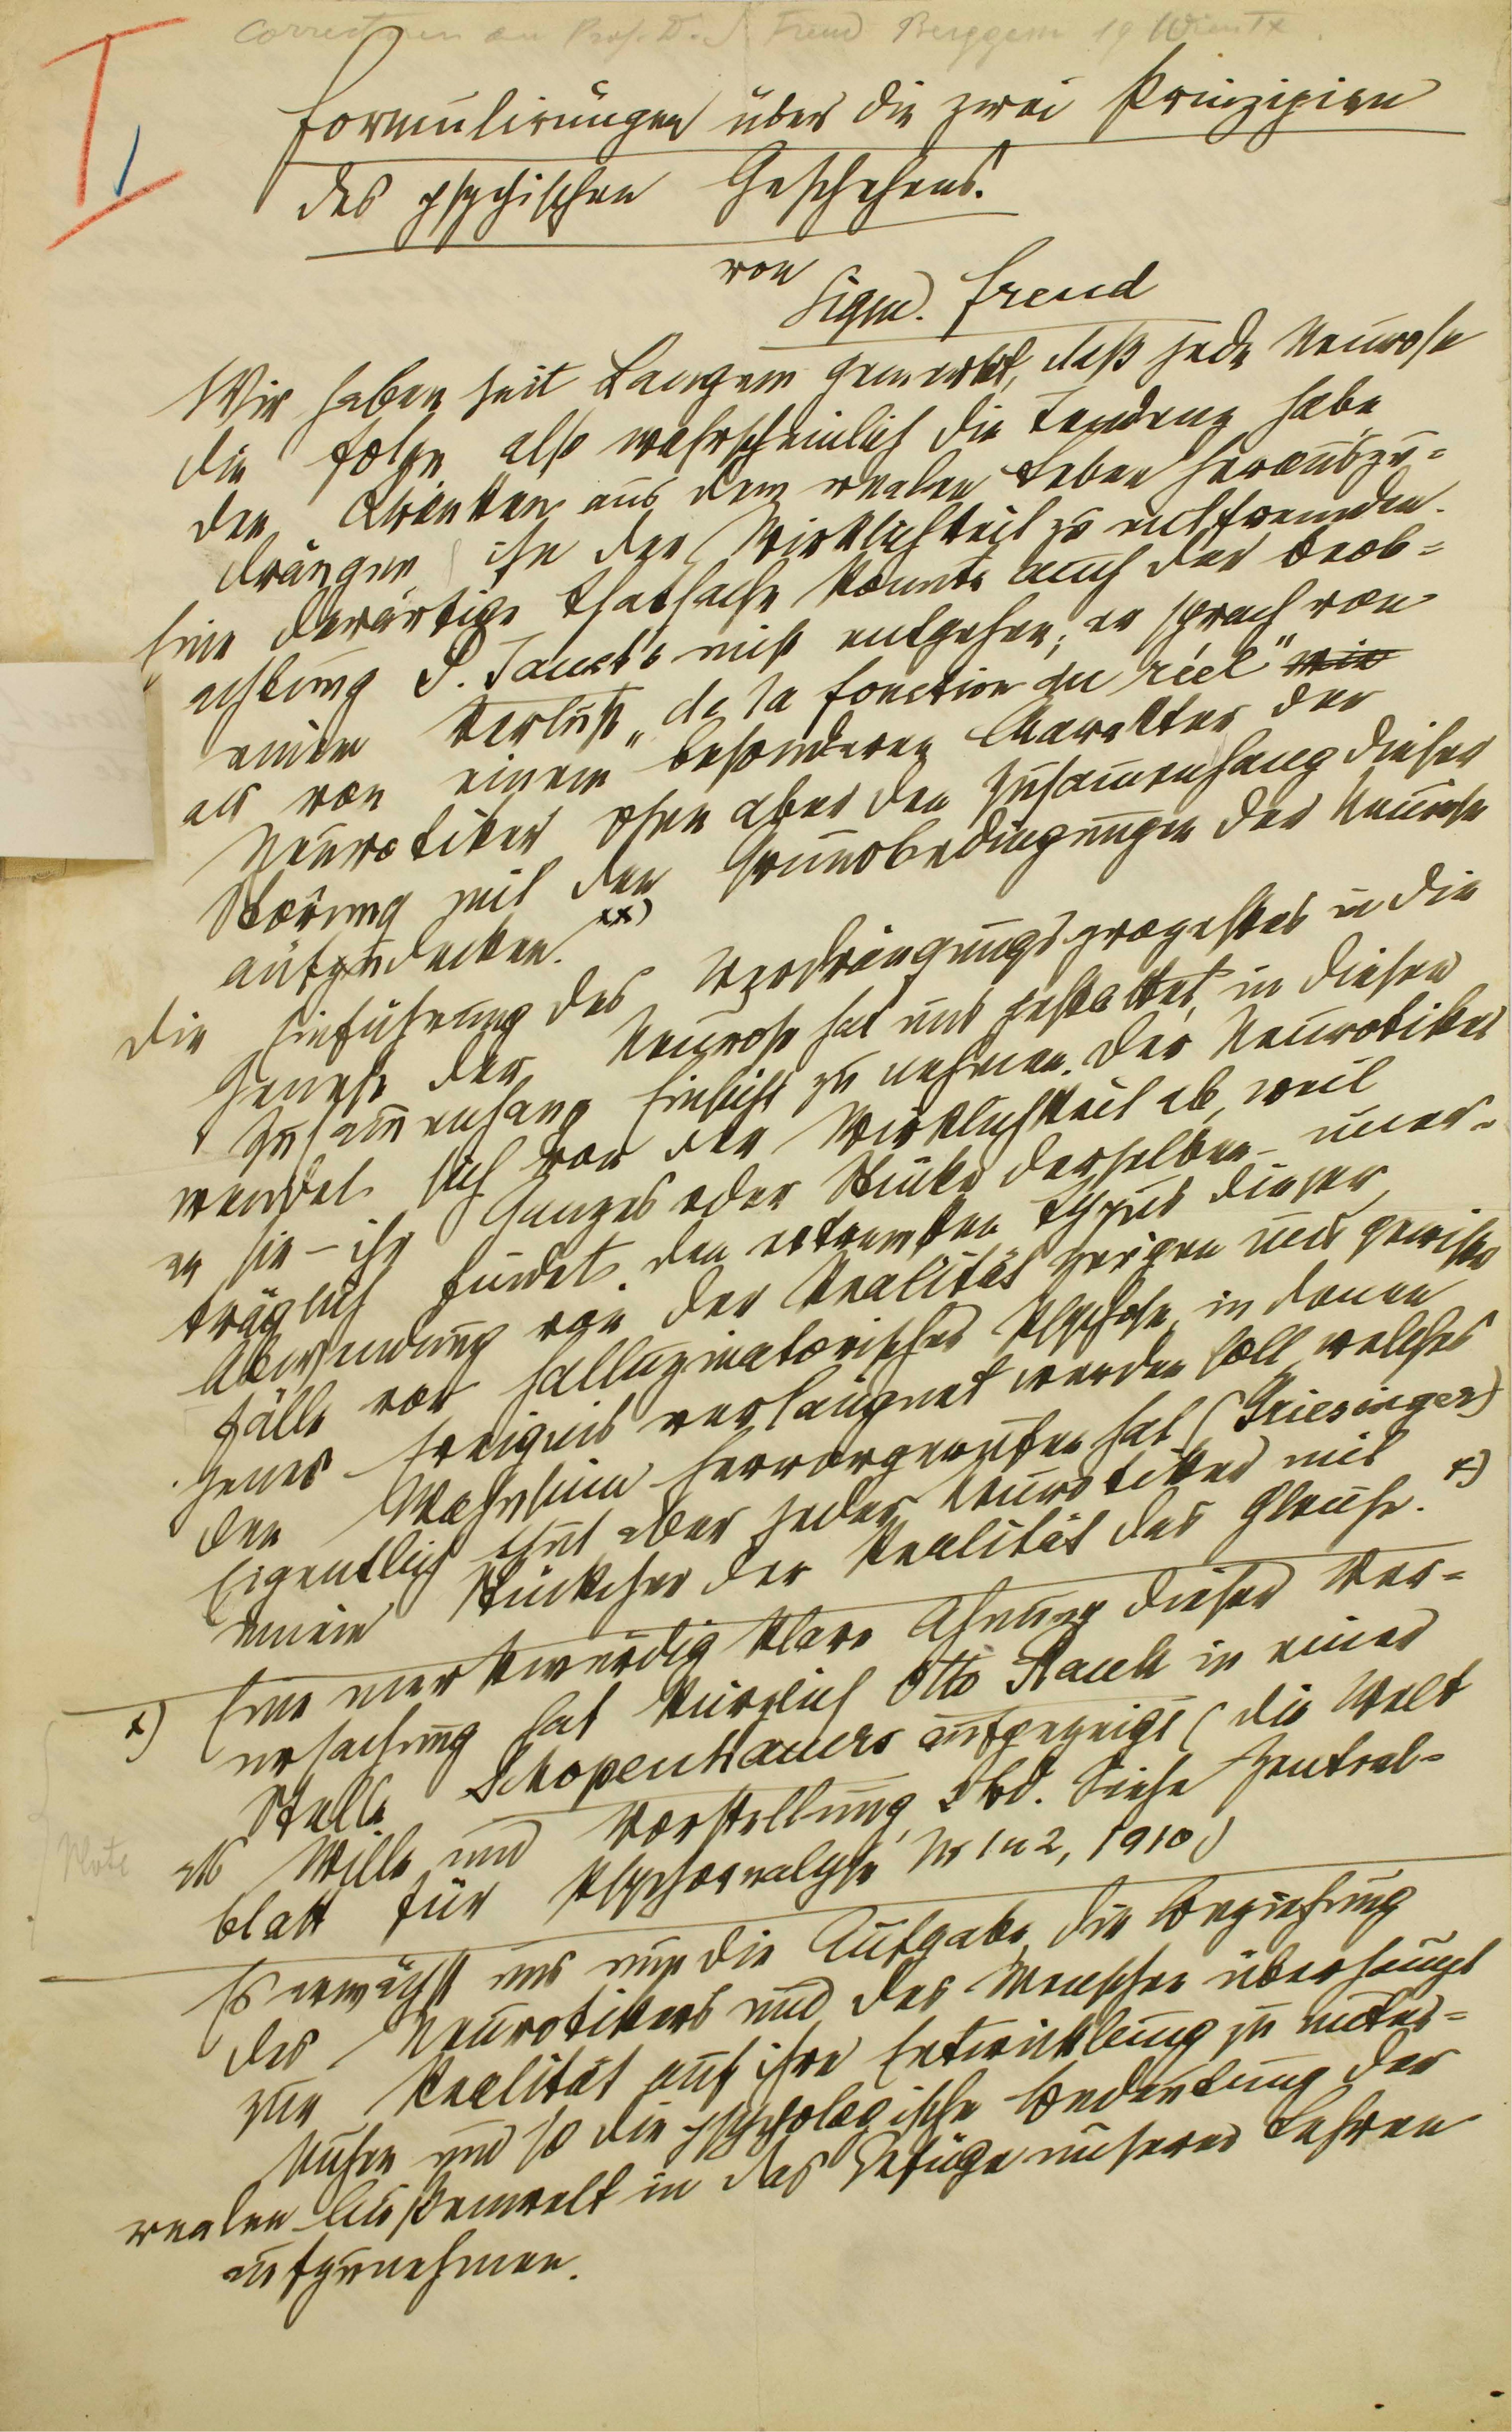 Correcturen an Prof. Dr. S. Freud Berggasse 19 Wien IX.
I
1
Formulirungen über die zwei Prinzipien
des psychischen Geschehens.
von
Sigm. Freud
Wir haben seit Langem gemerkt, daß jede Neurose
die Folge, also wahrscheinlich die Tendenz habe,
den Kranken aus dem realen Leben herauszu=
drängen, ihn der Wirklichkeit zu entfremden.
Eine derartige Thatsache konnte auch der Beob=
achtung P. Janet's nicht entgehen; er sprach von
einem Verluste „de la fonction du réel" wie
als von einem besonderen Charakter der
Neurotiker ohne aber den Zusammenhang dieser
Störung mit den Grundbedingungen der Neurose
aufzudecken. xx)
Die Einführung des Verdrängungsprozesses in die
Genese der Neurose hat uns gestattet, in diesen
Zusammenhang Einsicht zu nehmen. Der Neurotiker
wendet sich von der Wirklichkeit ab, weil
er sie – ihr Ganzes oder Stücke derselben – uner=
träglich findet. Den extremsten Typus dieser
Abwendung von der Realität zeigen uns gewisse
Fälle von halluzinatorischer Psychose, in denen
jenes Ereignis verläugnet werden soll, welches
den Wahnsinn hervorgerufen hat (Griesinger)
Eigentlich thut aber jeder Neurotiker mit
einem Stückchen der Realität das Gleiche. x)
x) Eine merkwürdig klare Ahnung dieser Ver=
ursachung hat kürzlich Otto Rank in einer
Stelle Schopenhauers aufgezeigt (Die Welt
als Wille und Vorstellung, 2 Bd. Siehe Zentral=
blatt für Psychoanalyse Nr 1 u 2, 1910)
Note
Es erwächst uns nun die Aufgabe, die Beziehung
des Neurotikers und des Menschen überhaupt
zur Realität auf ihre Entwicklung zu unter=
suchen und so die psychologische Bedeutung der
realen Außenwelt in das Gefüge unserer Lehren
aufzunehmen.